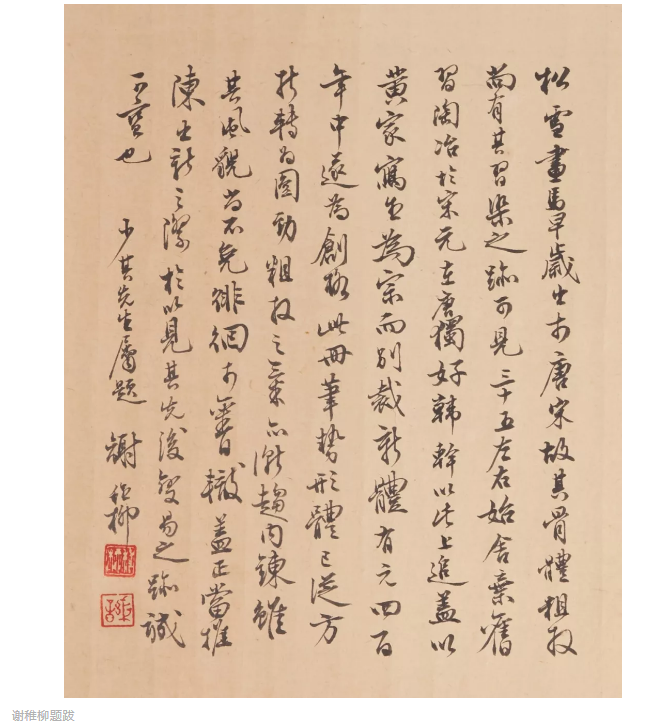 松雪畫馬早歲出于唐宋故其骨體粗放
尚有其習染之跡可見三十五左右始舍棄舊
習陶冶於宋元在唐獨好韓幹以此上追蓋以
黃家寫生為宗而別裁新體有元四百
年中遂為創格此冊筆勢形體已從方
折轉為圓勁粗放之氣亦漸趨內鍊雖
其風貌尚不免徘徊于舊轍蓋正當推
陳出新之際於以見其先後變易之跡誠
可寶也 少其先生屬題 謝稚柳
谢稚柳题跋